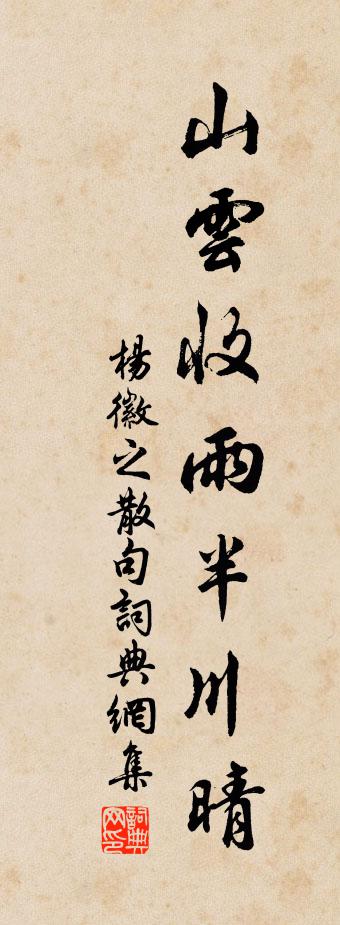 山雲收雨半川晴
楊徽之散句詞典網集
詞典网印